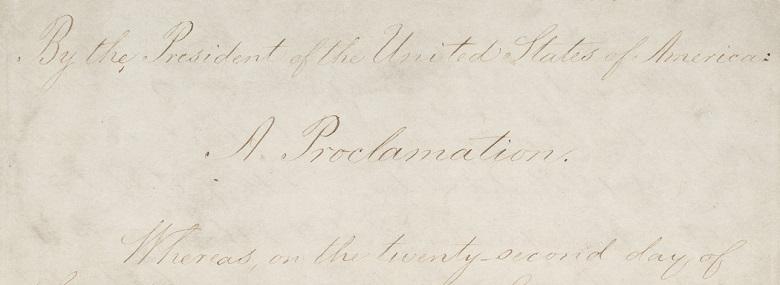 By the President of the United States of America:
A Proclamation.
Whereas, on the twenty-second day of